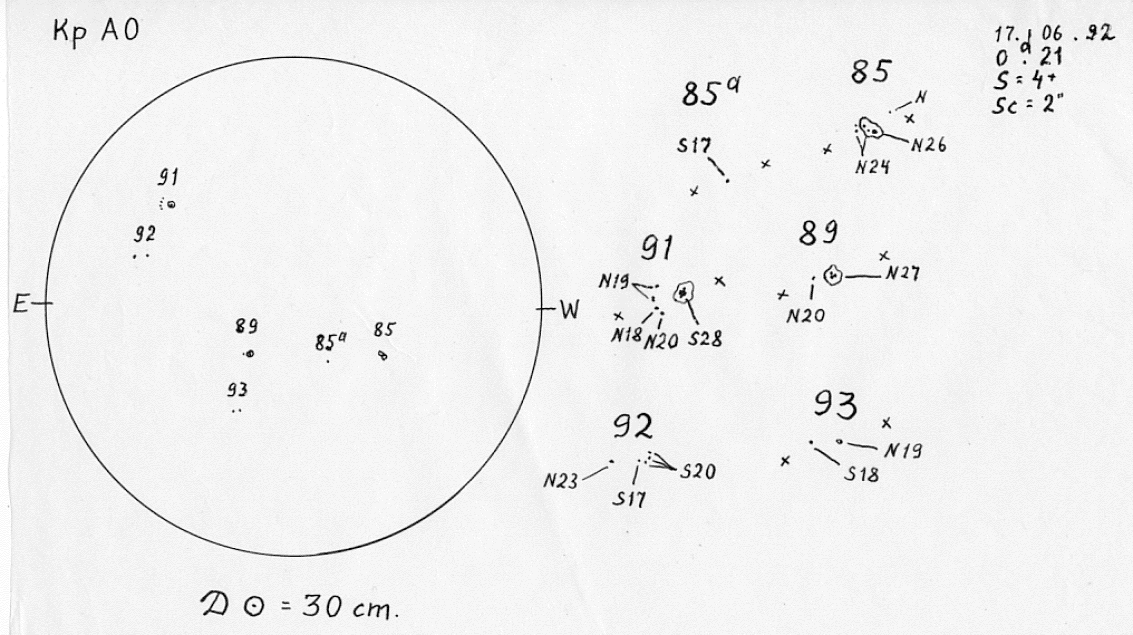 Кр АО
17. 06 . 92
0 d. 21
S = 4+
Sc = 2"
91
92
E
W
89
85a
85
93
D ⊙ = 30 cm.
85a
S17
85
N
N26
N24
91
N19
N18 N20 S28
89
N27
N20
92
N23
S17
S20
93
N19
S18